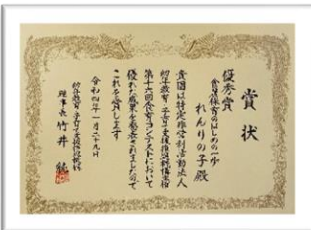 賞状
優秀賞
食育保育のはじめの一歩
れんりの子殿
貴園は特定非営利活動法人
幼年教育・子育て支援推進機構主催
第十六回食育コンテストにおいて
優れた成果を発表されましたので
これを賞します
令和四年一月二十九日
幼年教育・子育て支援推進機構
理事長 竹井